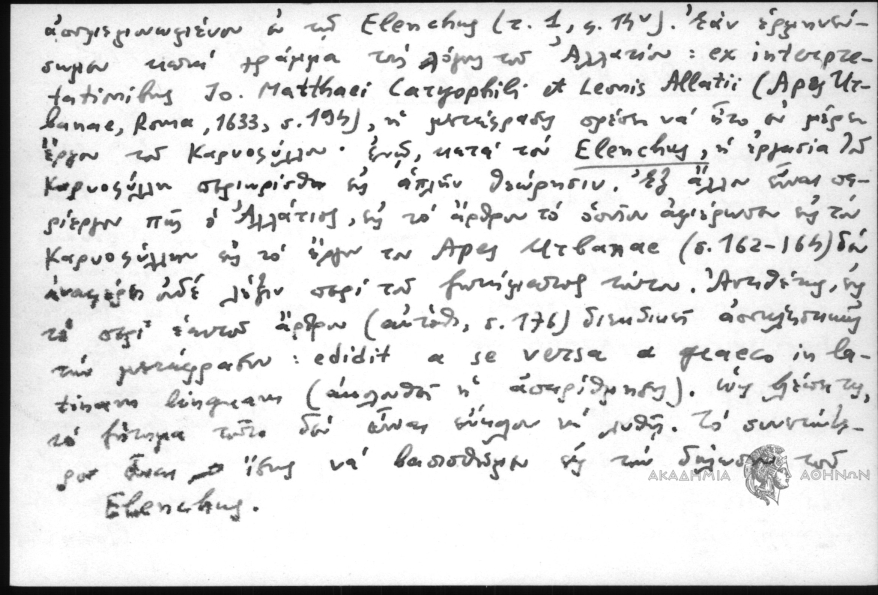 ἀπομεμονωμένον ἐν τῷ Elenchus (τ. 1, φ. 14ᵛ). Ἐὰν ἑρμηνεύ-
σωμεν κατὰ γράμμα τοὺς λόγους τοῦ Ἀλλατίου: ex interpre-
tationibus Jo. Matthaei Caryophili et Leonis Allatii (Apes Ur-
banae, Roma, 1633, σ. 194), ἡ μετάφρασις πρέπει νὰ ἦτο ἐν μέρει
ἔργον τοῦ Καρυοφύλλου· ἐνῷ, κατὰ τὸν Elenchus, ἡ ἐργασία τοῦ
Καρυοφύλλη περιωρίσθη εἰς ἁπλῆν θεώρησιν. Ἐξ ἄλλου εἶναι πε-
ρίεργον πῶς ὁ Ἀλλάτιος, εἰς τὸ ἄρθρον τὸ ὁποῖον ἀφιέρωσεν εἰς τὸν
Καρυοφύλλην εἰς τὸ ἔργον του Apes Urbanae (σ. 162-164) δὲν
ἀναφέρει οὐδὲ λέξιν περὶ τοῦ ζητήματος τούτου. Ἀντιθέτως, εἰς
τὸ περὶ ἑαυτοῦ ἄρθρον (αὐτόθι, σ. 176) διεκδικεῖ
τὴν μετάφρασιν: edidit a se versa a graeco in la-
tinam linguam (ἀκολουθεῖ ἡ ἀπαρίθμησις). Ὡς βλέπετε,
τὸ ζήτημα τοῦτο δὲν εἶναι εὔκολον νὰ λυθῇ. Τὸ συνετώτε-
ρον εἶναι ἴσως νὰ βασισθῶμεν εἰς τὴν δήλωσιν τοῦ
Elenchus.
ΑΚΑΔΗΜΙΑ ΑΘΗΝΩΝ